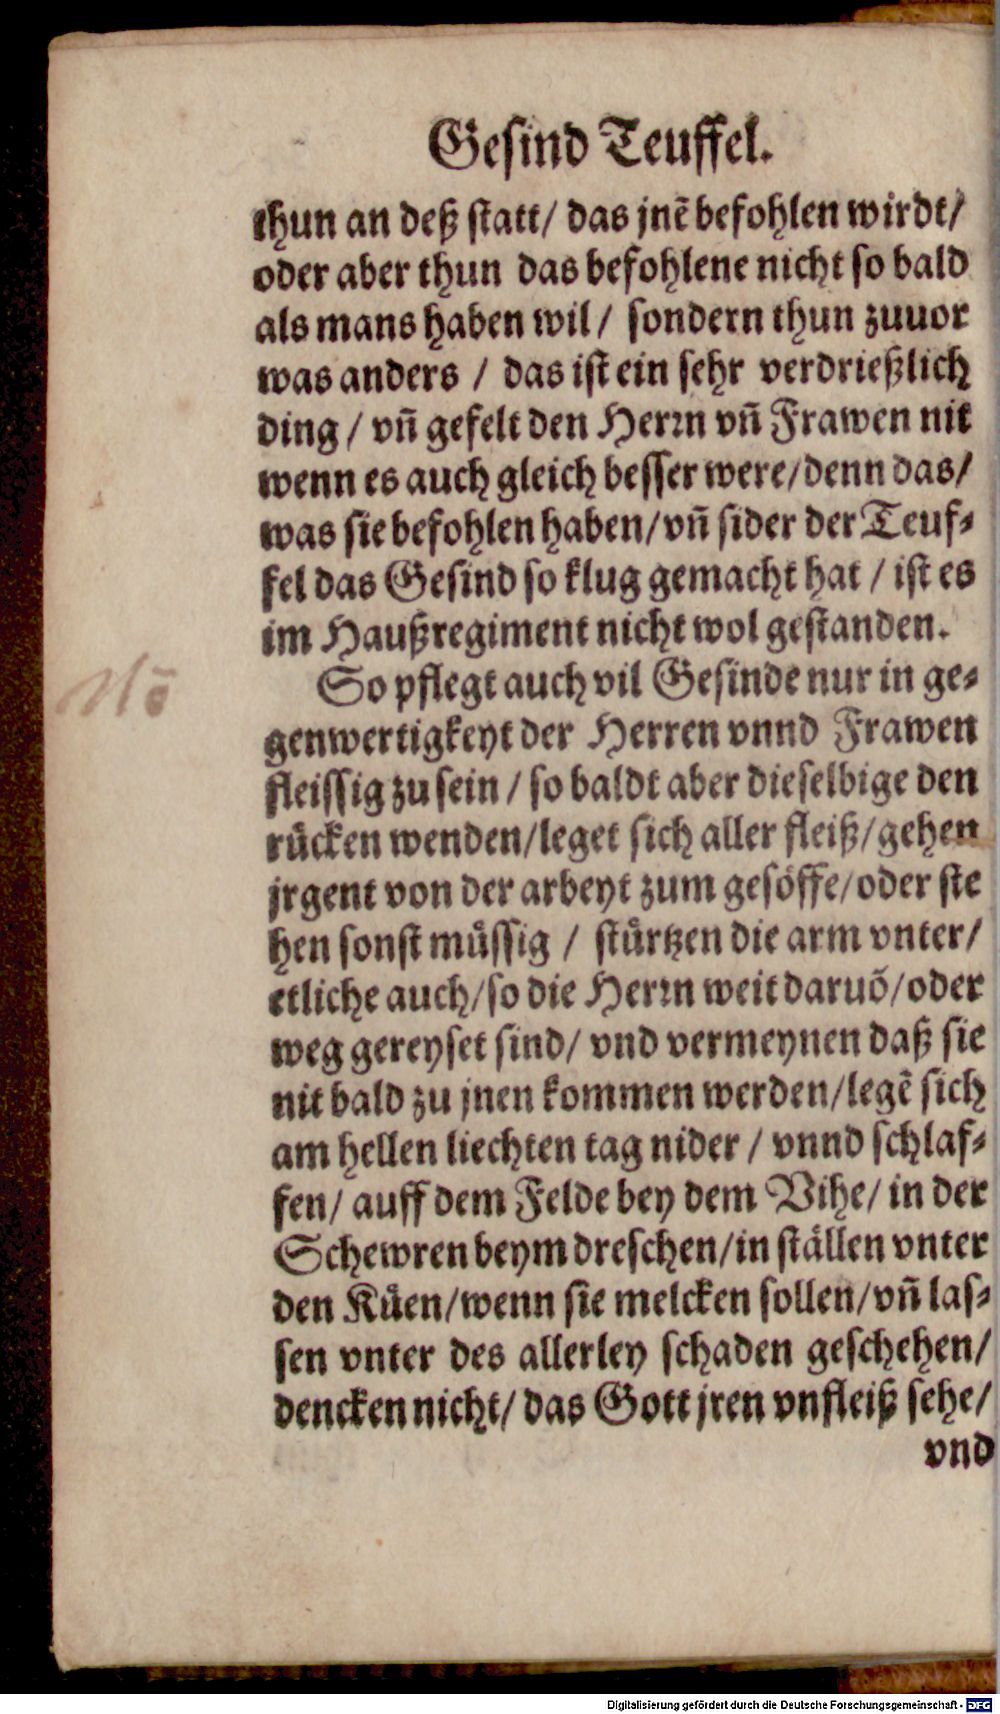 Gesind Teuffel.
thun an deß statt/ das jnẽ befohlen wirdt/
oder aber thun das befohlene nicht so bald
als mans haben wil/ sondern thun zuuor
was anders / das ist ein sehr verdrießlich
ding / vñ gefelt den Herrn vñ Frawen nit
wenn es auch gleich besser were/denn das/
was sie befohlen haben/vñ sider der Teuf⸗
fel das Gesind so klug gemacht hat / ist es
im Haußregiment nicht wol gestanden.
So pflegt auch vil Gesinde nur in ge⸗
genwertigkeyt der Herren vnnd Frawen
fleissig zu sein / so baldt aber dieselbige den
rücken wenden/leget sich aller fleiß/gehen
jrgent von der arbeyt zum gesöffe/oder ste
hen sonst müssig / stürtzen die arm vnter/
etliche auch/so die Herrn weit daruõ/oder
weg gereyset sind/ vnd vermeynen daß sie
nit bald zu jnen kommen werden/legẽ sich
am hellen liechten tag nider / vnnd schlaf⸗
fen/ auff dem Felde bey dem Vihe/ in der
Schewren beym dreschen/in ställen vnter
den Küen/wenn sie melcken sollen/vñ las⸗
sen vnter des allerley schaden geschehen/
dencken nicht/ das Gott jren vnfleiß sehe/
vnd
Digitalisierung gefördert durch die Deutsche Forschungsgemeinschaft - DFG